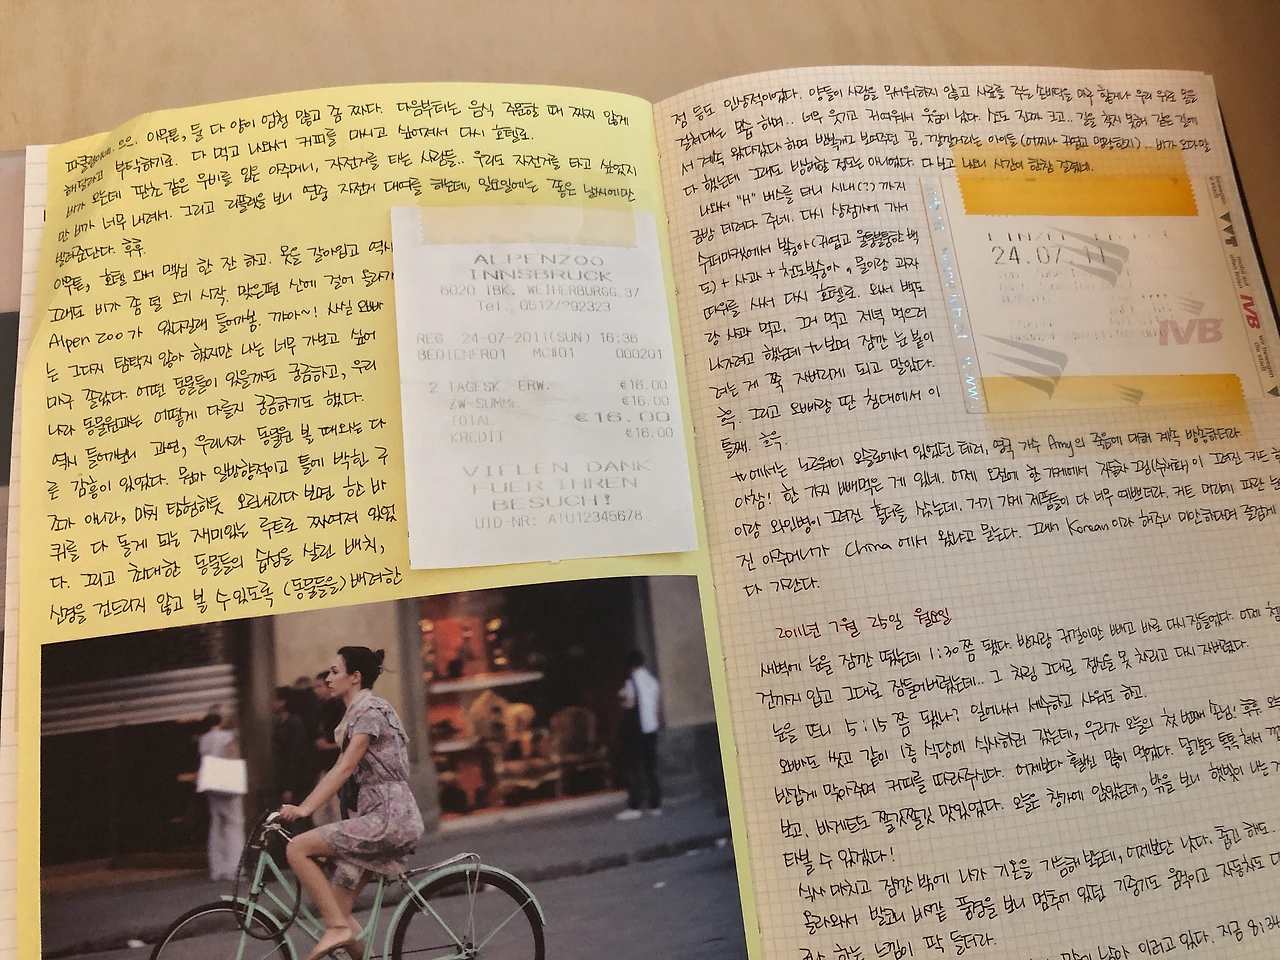 파클린이네. 으으. 아무튼, 둘 다 양이 엄청 많고 좀 짜다. 다음부터는 음식 주문할 때 짜지 않게
해달라고 부탁하기로. 다 먹고 나와서 커피를 마시고 싶어져서 다시 호텔로.
비가 오는데 판초 같은 우비를 입은 아주머니, 자전거를 타는 사람들.. 우리도 자전거를 타고 싶었지
만 비가 너무 내려서. 그리고 리플렛을 보니 연중 자전거 대여를 해놨는데, 일요일에는 좋은 날씨에만
빌려준단다. 흑흑.
아무튼, 호텔 와서 맥심 한 잔 하고. 옷을 갈아입고 역시
그래도 비가 좀 덜 오기 시작. 맞은편 산에 걸어 올라가
Alpen zoo가 있다길래 들어가봄. 꺄아~! 사실 오빠
는 그다지 탐탁지 않아 했지만 나는 너무 가보고 싶어
마구 졸랐다. 어떤 동물들이 있을까도 궁금하고, 우리
나라 동물원과는 어떻게 다를지 궁금하기도 했다.
역시 들어가보니 과연, 우리나라 동물원 볼 때와는 다
른 감흥이 있었다. 뭔가 일방향적이고 틀에 박힌 구
조가 아니라, 마치 탐험하듯 오르내리다 보면 한 바
퀴를 다 돌게 되는 재미있는 루트로 짜여져 있었
다. 그리고 최대한 동물들의 습성을 살린 배치,
신경을 건드리지 않고 볼 수 있도록 (동물들을) 배려한
ALPENZOO
INNSBRUCK
6020 IBK, WEIHERBURGG.37
Tel. 0512/292323
REG 24-07-2011(SUN) 16:36
BEDIENER01 MC#01 000201
2 TAGESK. ERW. €16.00
ZW-SUMME €16.00
TOTAL €16.00
KREDIT €16.00
VIELEN DANK
FUER IHREN
BESUCH!
UID-NR: ATU12345678
점 등도 인상적이었다. 양들이 사람을 무서워하지 않고 사료를 주는 손바닥을 마구
하며.. 너무 웃기고 귀여워서 웃음이 났다. 소도 진짜 크고.. 길을 찾지 못해 같은 길에
서 계속 왔다갔다 하며
다 했는데 그래도 방해할 정도는 아니었다. 다 보고 나니 시간이 한참 걸렸네.
나와서 "H" 버스를 타니 시내(?)까지
금방 데려다 주네. 다시 상점가에 가서
수퍼마켓에서 복숭아(귀엽고 울퉁불퉁한 백
도) + 사과 + 천도복숭아, 물이랑 과자
따위를 사서 다시 호텔로. 와서 백도
랑 사과 먹고, 그거 먹고 저녁 먹으러
나가려고 했는데 tv 보며 잠깐 눈 붙이
려는 게 쭉 자버리게 되고 말았다.
흑. 그리고 오빠랑 딴 침대에서 이
틀째. 흐윽.
24.07.11
IVB
VVT
www.ivb.at
tv에서는 노르웨이 오슬로에서 있었던 테러, 영국 가수 Amy의 죽음에 대해 계속 방송하더라.
아참! 한 가지 빼먹은 게 있네. 어제 오전에 한 가게에서 그려진 카드
이랑 와인병이 그려진 홀더를 샀는데. 거기 가게 제품들이 다 너무 예쁘더라. 커트 머리에 파란 눈
진 아주머니가 China에서 왔냐고 묻는다. 그래서 Korean이라 해주니 미안하다며 즐겁게
다 가란다.
2011년 7월 25일 월요일
새벽에 눈을 잠깐 떴는데 1:30쯤 됐다. 반지랑 귀걸이만 빼고 바로 다시 잠들었다. 어제
건까지 입고 그대로 잠들어버렸는데.. 그 차림 그대로 정신을 못 차리고 다시 자버렸다.
눈을 뜨니 5:15쯤 됐나? 일어나서 세수하고 샤워도 하고.
오빠도 씻고 같이 1층 식당에 식사하러 갔는데, 우리가 오늘의 첫 번째 손님! 후후.
반갑게 맞아주며 커피를 따라주신다. 어제보다 훨씬 많이 먹었다. 달걀도 톡톡 쳐서
보고. 바게트도 쫄깃쫄깃 맛있었다. 오늘은 창가에 앉았는데, 밖을 보니 햇빛이 나는
타볼 수 있겠다!
식사 마치고 잠깐 밖에 나가 기온을 가늠해 봤는데, 어제보단 낫다. 춥긴 해도.
올라와서 발코니 바깥 풍경을 보니 멈추어 있던 기중기도 움직이고 자동차도
하는 느낌이 딱 들더라.
이러고 있다. 지금